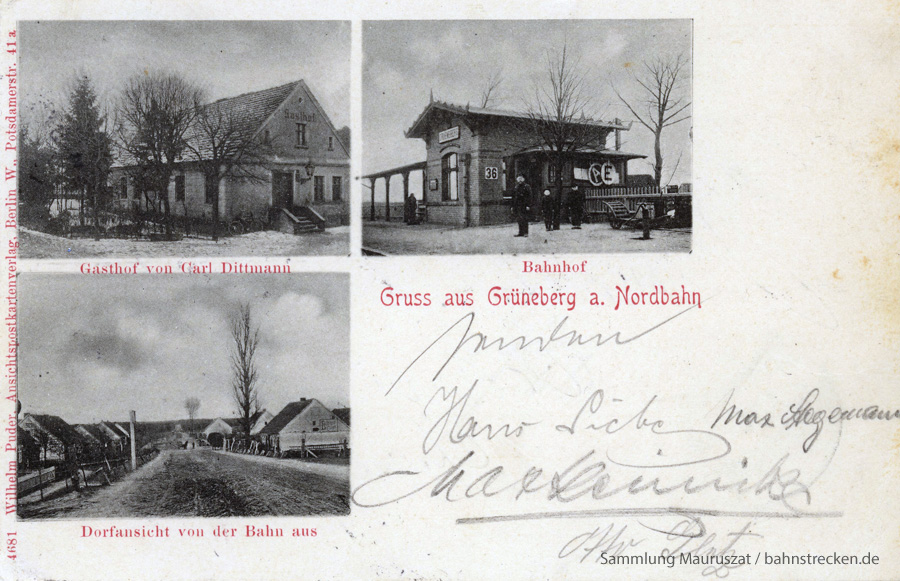 4681 Wilhelm Puder, Ansichtspostkartenverlag, Berlin W., Potsdamerstr. 41a.
Gasthof
36
Gasthof von Carl Dittmann
Bahnhof
Gruss aus Grüneberg a. Nordbahn
senden
Hans Liebe
Max Stegemann
Dorfansicht von der Bahn aus
Sammlung Mauruszat / bahnstrecken.de